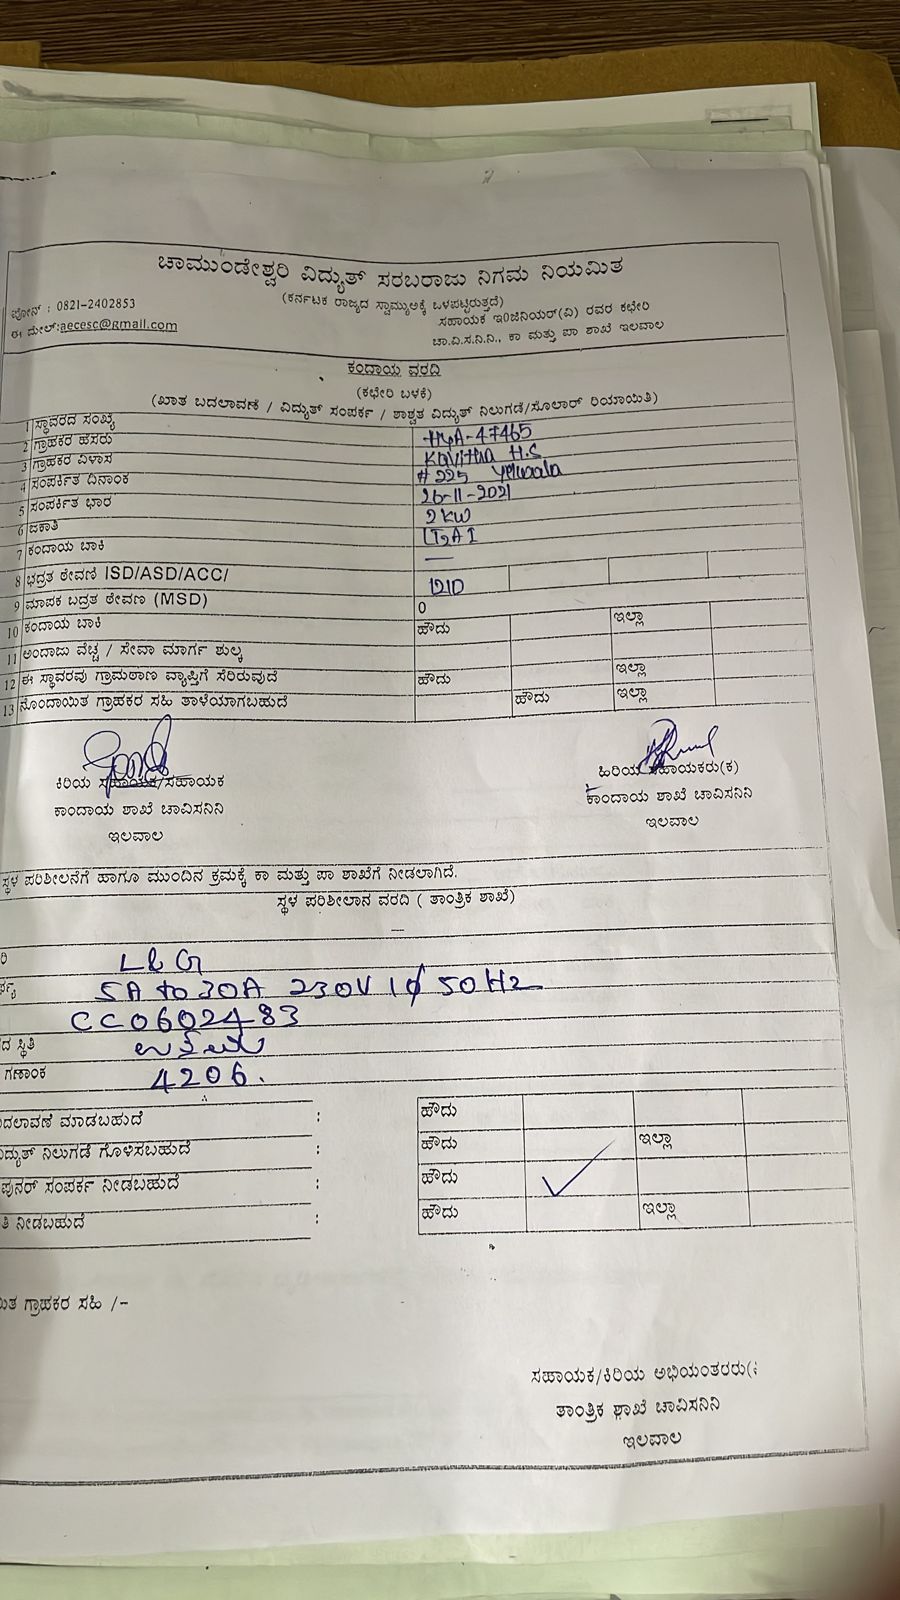 ಚಾಮುಂಡೇಶ್ವರಿ ವಿದ್ಯುತ್ ಸರಬರಾಜು ನಿಗಮ ನಿಯಮಿತ
(ಕರ್ನಟಕ ರಾಜ್ಯದ ಸ್ವಾಮ್ಯುಅಕ್ಕೆ ಒಳಪಟ್ಟಿರುತ್ತದೆ)
ಪೋನ್ : 0821-2402853
ಸಹಾಯಕ ಇ0ಜಿನಿಯರ್(ವಿ) ರವರ ಕಛೇರಿ
ಈ ಮೇಲ್:aecesc@gmail.com
ಚಾ.ವಿ.ಸ.ನಿ.ನಿ., ಕಾ ಮತ್ತು ಪಾ ಶಾಖೆ ಇಲವಾಲ
ಕಂದಾಯ ವರದಿ
(ಕಛೇರಿ ಬಳಕೆ)
(ಖಾತ ಬದಲಾವಣೆ / ವಿದ್ಯುತ್ ಸಂಪರ್ಕ / ಶಾಶ್ವತ ವಿದ್ಯುತ್ ನಿಲುಗಡೆ/ಸೋಲಾರ್ ರಿಯಾಯಿತಿ)
1 ಸ್ಥಾವರದ ಸಂಖ್ಯೆ HyA-47465
2 ಗ್ರಾಹಕರ ಹೆಸರು Kavitha H.S
3 ಗ್ರಾಹಕರ ವಿಳಾಸ # 225 Yelwala
4 ಸಂಪರ್ಕಿತ ದಿನಾಂಕ 26-11-2021
5 ಸಂಪರ್ಕಿತ ಭಾರ 2 KW
6 ಜಕಾತಿ LT2A I
7 ಕಂದಾಯ ಬಾಕಿ —
8 ಭದ್ರತ ಠೇವಣಿ ISD/ASD/ACC/ 1210
9 ಮಾಪಕ ಬದ್ರತ ಠೇವಣ (MSD) 0
10 ಕಂದಾಯ ಬಾಕಿ ಹೌದು ಇಲ್ಲಾ
11 ಅಂದಾಜು ವೆಚ್ಚ / ಸೇವಾ ಮಾರ್ಗ ಶುಲ್ಕ
12 ಈ ಸ್ಥಾವರವು ಗ್ರಾಮಠಾಣ ವ್ಯಾಪ್ತಿಗೆ ಸೆರಿರುವುದೆ ಹೌದು ಇಲ್ಲಾ
13 ನೊಂದಾಯಿತ ಗ್ರಾಹಕರ ಸಹಿ ತಾಳೆಯಾಗಬಹುದೆ ಹೌದು ಇಲ್ಲಾ
ಕಿರಿಯ ಸಹಾಯಕ/ಸಹಾಯಕ
ಕಾಂದಾಯ ಶಾಖೆ ಚಾವಿಸನಿನಿ
ಇಲವಾಲ
ಹಿರಿಯ ಸಹಾಯಕರು(ಕ)
ಕಾಂದಾಯ ಶಾಖೆ ಚಾವಿಸನಿನಿ
ಇಲವಾಲ
ಸ್ಥಳ ಪರಿಶೀಲನೆಗೆ ಹಾಗೂ ಮುಂದಿನ ಕ್ರಮಕ್ಕೆ ಕಾ ಮತ್ತು ಪಾ ಶಾಖೆಗೆ ನೀಡಲಾಗಿದೆ.
ಸ್ಥಳ ಪರಿಶೀಲಾನ ವರದಿ ( ತಾಂತ್ರಿಕ ಶಾಖೆ)
L & G
5A to 30A 230V 1ϕ 50Hz
CC0602483
ದ ಸ್ಥಿತಿ ಉತ್ತಮ
ಗಣಾಂಕ 4206.
ದಲಾವಣೆ ಮಾಡಬಹುದೆ : ಹೌದು
ದ್ಯುತ್ ನಿಲುಗಡೆ ಗೊಳಿಸಬಹುದೆ : ಹೌದು ಇಲ್ಲಾ
ಪುನರ್ ಸಂಪರ್ಕ ನೀಡಬಹುದೆ : ಹೌದು ✓
ತಿ ನೀಡಬಹುದೆ : ಹೌದು ಇಲ್ಲಾ
ಯಿತ ಗ್ರಾಹಕರ ಸಹಿ /-
ಸಹಾಯಕ/ಕಿರಿಯ ಅಭಿಯಂತರರು(
ತಾಂತ್ರಿಕ ಶಾಖೆ ಚಾವಿಸನಿನಿ
ಇಲವಾಲ